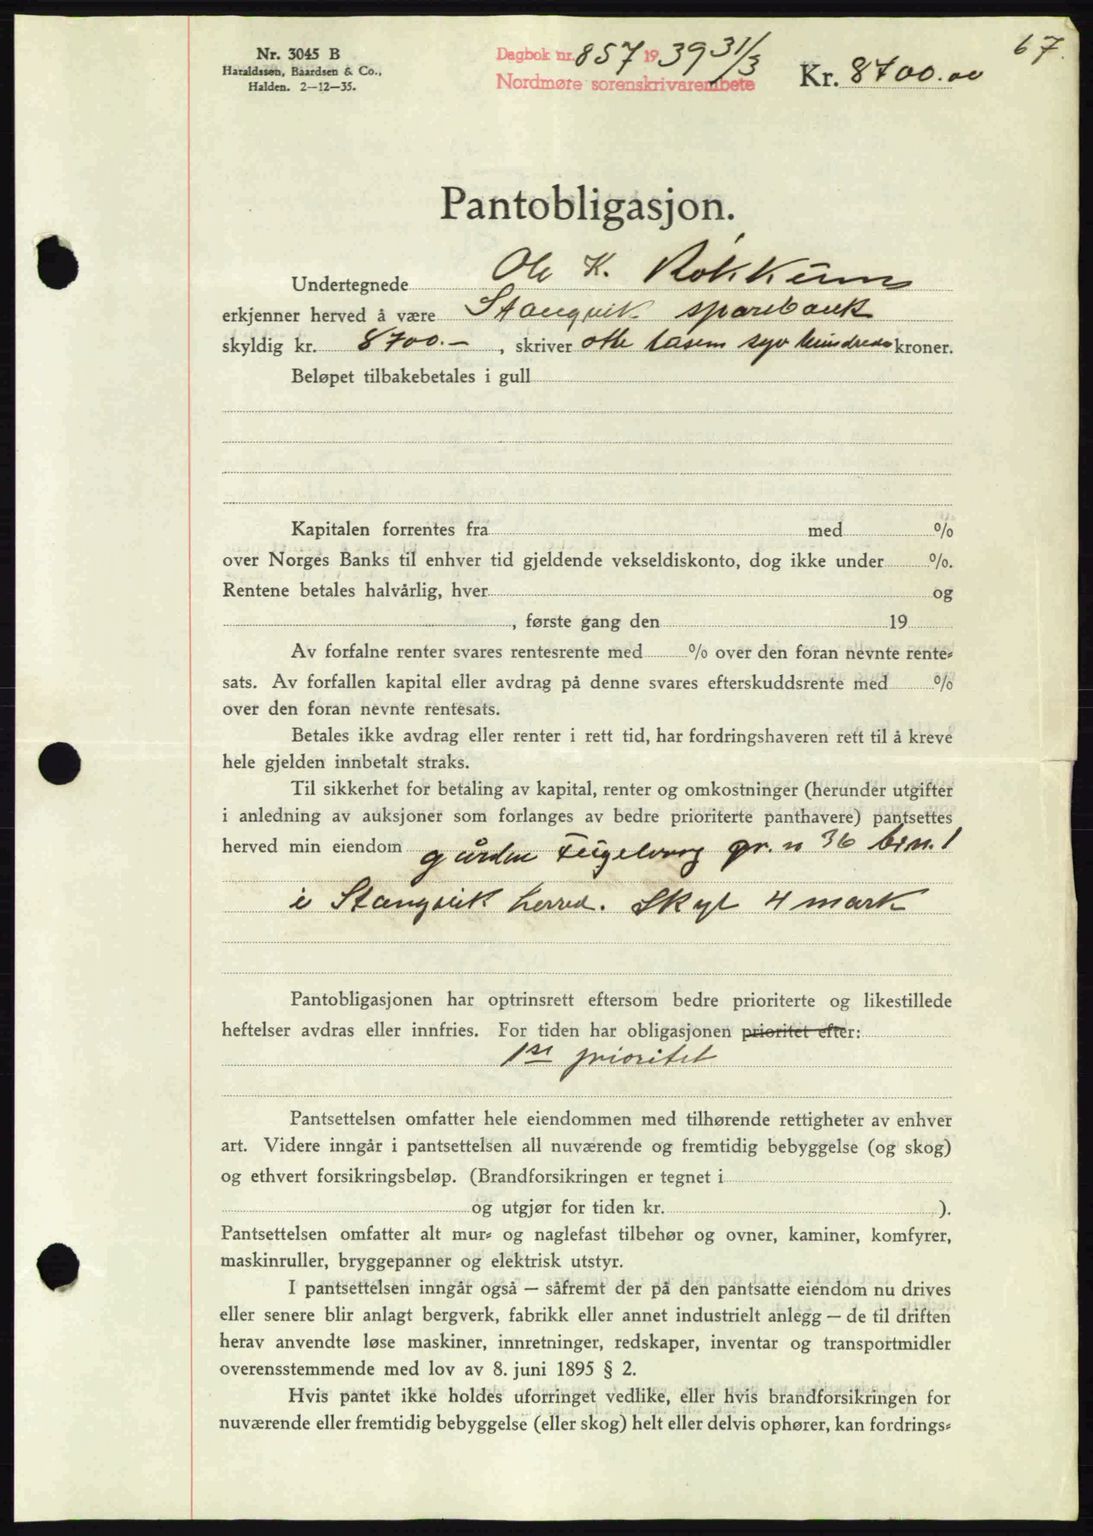 67.
Nr. 3045 B
Haraldssen, Baardsen & Co.,
Halden. 2-12-35.
Dagbok nr. 857 1939 31/3
Nordmøre sorenskrivarembete
Kr. 8700.00
Pantobligasjon.
Undertegnede Ole K. Røkkum
erkjenner herved å være Stangvik sparebank
skyldig kr. 8700.-, skriver otte tusem syv hundrede kroner.
Beløpet tilbakebetales i gull
Kapitalen forrentes fra med %
over Norges Banks til enhver tid gjeldende vekseldiskonto, dog ikke under %.
Rentene betales halvårlig, hver og
, første gang den 19
Av forfalne renter svares rentesrente med % over den foran nevnte rente-
sats. Av forfallen kapital eller avdrag på denne svares efterskuddsrente med %
over den foran nevnte rentesats.
Betales ikke avdrag eller renter i rett tid, har fordringshaveren rett til å kreve
hele gjelden innbetalt straks.
Til sikkerhet for betaling av kapital, renter og omkostninger (herunder utgifter
i anledning av auksjoner som forlanges av bedre prioriterte panthavere) pantsettes
herved min eiendom gården gr. n 36 br.n. 1
i Stangvik herred. Skyl 4 mark
Pantobligasjonen har optrinsrett eftersom bedre prioriterte og likestillede
heftelser avdras eller innfries. For tiden har obligasjonen prioritet efter:
1ste prioritet
Pantsettelsen omfatter hele eiendommen med tilhørende rettigheter av enhver
art. Videre inngår i pantsettelsen all nuværende og fremtidig bebyggelse (og skog)
og ethvert forsikringsbeløp. (Brandforsikringen er tegnet i
og utgjør for tiden kr. ).
Pantsettelsen omfatter alt mur- og naglefast tilbehør og ovner, kaminer, komfyrer,
maskinruller, bryggepanner og elektrisk utstyr.
I pantsettelsen inngår også — såfremt der på den pantsatte eiendom nu drives
eller senere blir anlagt bergverk, fabrikk eller annet industrielt anlegg — de til driften
herav anvendte løse maskiner, innretninger, redskaper, inventar og transportmidler
overensstemmende med lov av 8. juni 1895 § 2.
Hvis pantet ikke holdes uforringet vedlike, eller hvis brandforsikringen for
nuværende eller fremtidig bebyggelse (eller skog) helt eller delvis ophører, kan fordrings-